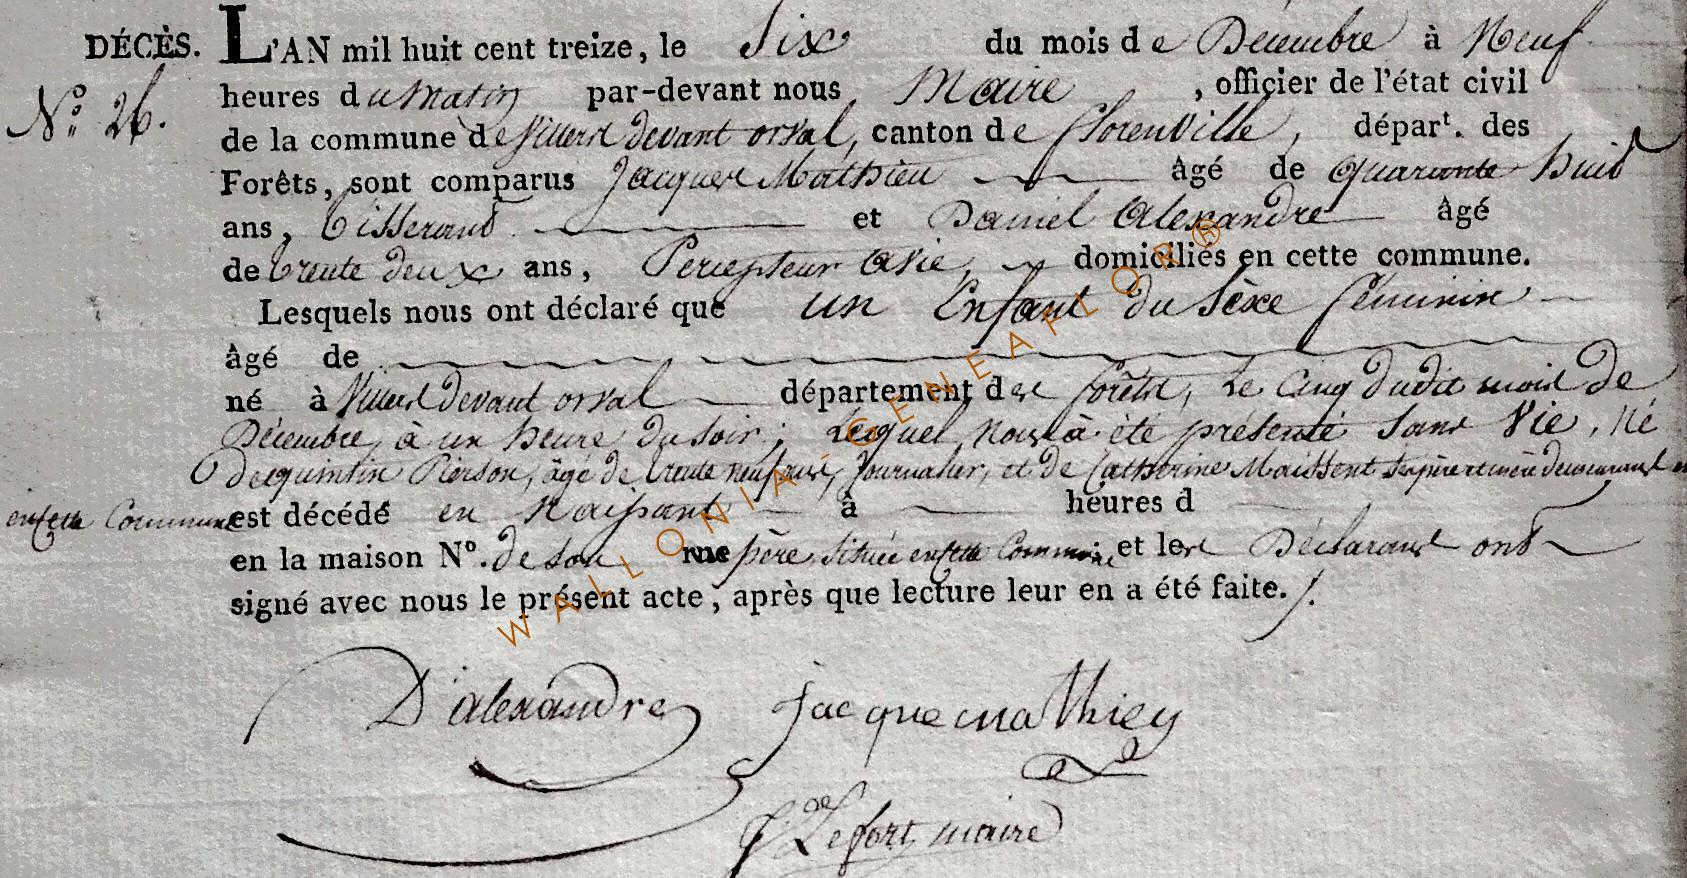 DÉCÈS. L'AN mil huit cent treize, le Six du mois de Décembre à Neuf
N.º 26. heures du Matin par-devant nous Maire , officier de l'état civil
de la commune de Villers devant orval, canton de florenville, départ. des
Forêts, sont comparus Jacques Mathieu âgé de quarante huit
ans, tisserand et Daniel Alexandre âgé
de trente deux ans, Percepteur à vie, domiciliés en cette commune.
Lesquels nous ont déclaré que un Enfant du Sèxe féminin
âgé de
né à Villers devant orval département des forêts, Le cinq dudit mois de
Décembre, à un heure du soir ; Lequel nous à été présenté sans Vie, né
de quintin Pierson, âgé de trente neuf ans, Journalier, et de Catherine Maissent ses père et mère demeurant en
cette Commune est décédé en Naissant à heures d
en la maison N.º de son rue père, située en cette Commune et les Déclarans ont
signé avec nous le présent acte, après que lecture leur en a été faite. /.
D'alexandre jacque mathiey
Lefort maire
WALLONIA - GENEAFLOR®